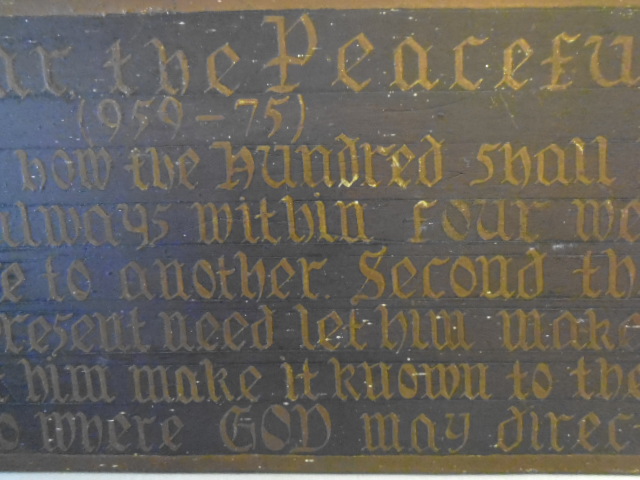 ar the Peacefu
(959-75)
how the hundred shall
always within four we
e to another. Second th
present need let him make
him make it known to the
o where GOD may direc